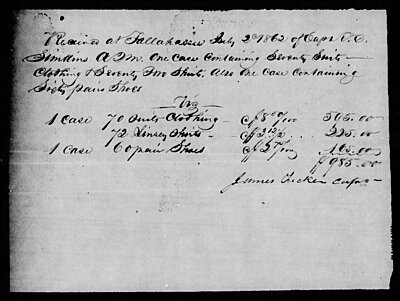 Received at Tallahassee July 2d 1862 of Capt
Simkins A.Q.M. One Case Containing Seventy Suits
Clothing & Seventy Two Shirts, Also One Case Containing
Sixty pairs Shoes
Viz
1 Case 70 Suits Clothing 595.00
72 Linsey Shirts 225.00
1 Case 60 pair Shoes 165.00
$985.00
James Tucker Capt